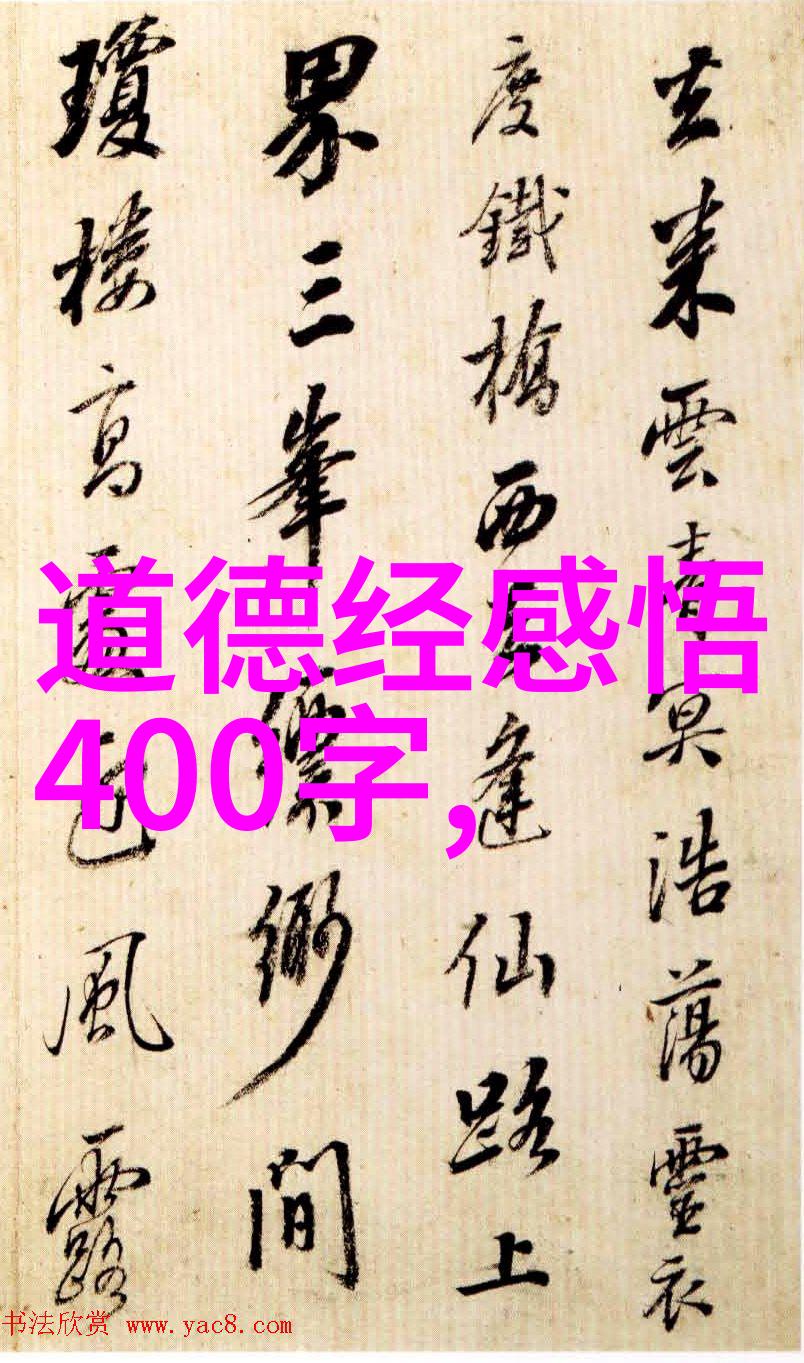 去來雲青冥浩蕩靈衣
度鐵橋西逢仙路上
界三峯縹緲間
瓊樓高處風露
道德经感悟
400字，
书法欣赏 www.yac8.com